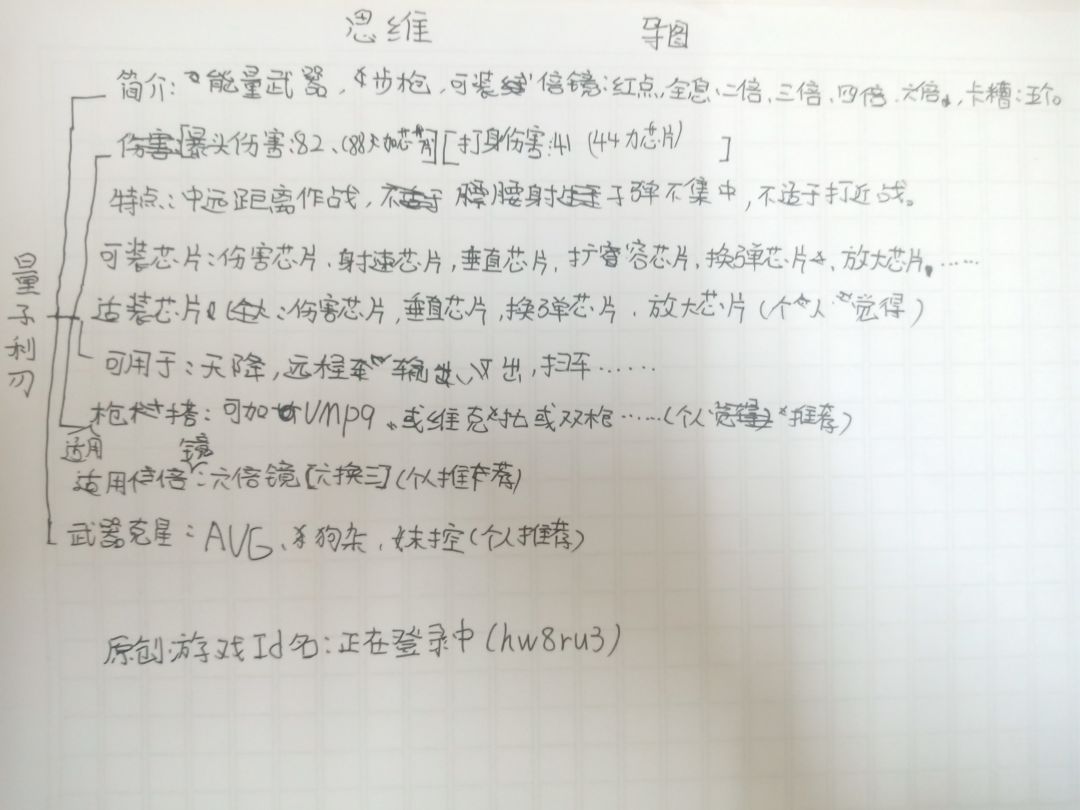 思维 导图
简介:能量武器,步枪,可装倍镜:红点,全息、二倍、三倍、四倍、六倍,卡槽:五个。
伤害[暴头伤害:82、(88加芯片)][打身伤害:41 (44加芯片) ]
特点:中远距离作战,腰射子弹不集中,不适于打近战。
可装芯片:伤害芯片、射速芯片,垂直芯片,扩容芯片、换弹芯片、放大芯片……
适装芯片:伤害芯片,垂直芯片,换弹芯片、放大芯片(个人觉得)
量子利刃
可用于:天降,远程输出,扫车……
枪搭:可加UMP9、或维克托或双枪……(个人推荐)
适用倍镜:六倍镜[六换三](个人推荐)
武器克星:AUG、狗杂,妹控(个人推荐)
原创:游戏Id名:正在登录中(hw8ru3)